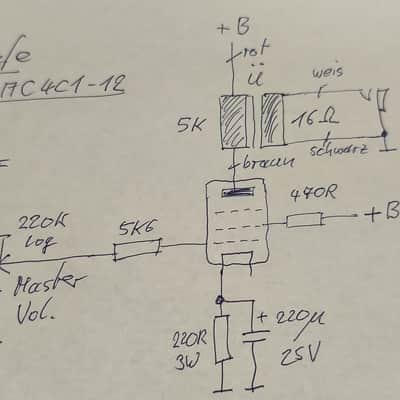 +B
rot
ü
weis
MC4C1-12
5K
16Ω
schwarz
braun
470R
+B
220K
log
5K6
Master
Vol.
220R
3W
+ 220µ
25V